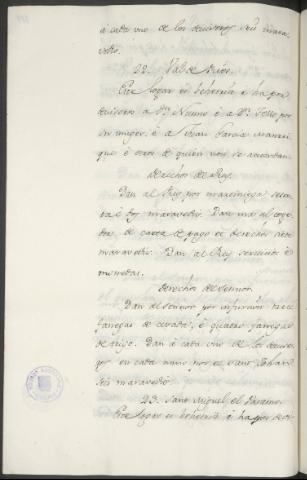 á cada uno de los deviseros seis marave-
dis.
22. Val de
Este logar es behetria é ha por
deviseros a Dn. Nunno é a Dn. Tello por
su muger, é a Juan Garcia Manrri-
que é otros de quien non se acuerdan
derechos del Rey.
Dan al Rey por martiniega sesen-
ta é dos maravedis. Dan mas al coge-
dor de carta de pago é derechos siete
maravedis. Dan al Rey servicios é
monedas.
derechos del sennor.
Dan al sennor por infurcion trece
fanegas de cevada, é quatro fanegas
de trigo. Dan á cada uno de los devise-
ros en cada anno por
seis maravedis.
23. Sant Miguel del Paramo.
Este logar es behetria é ha por de-